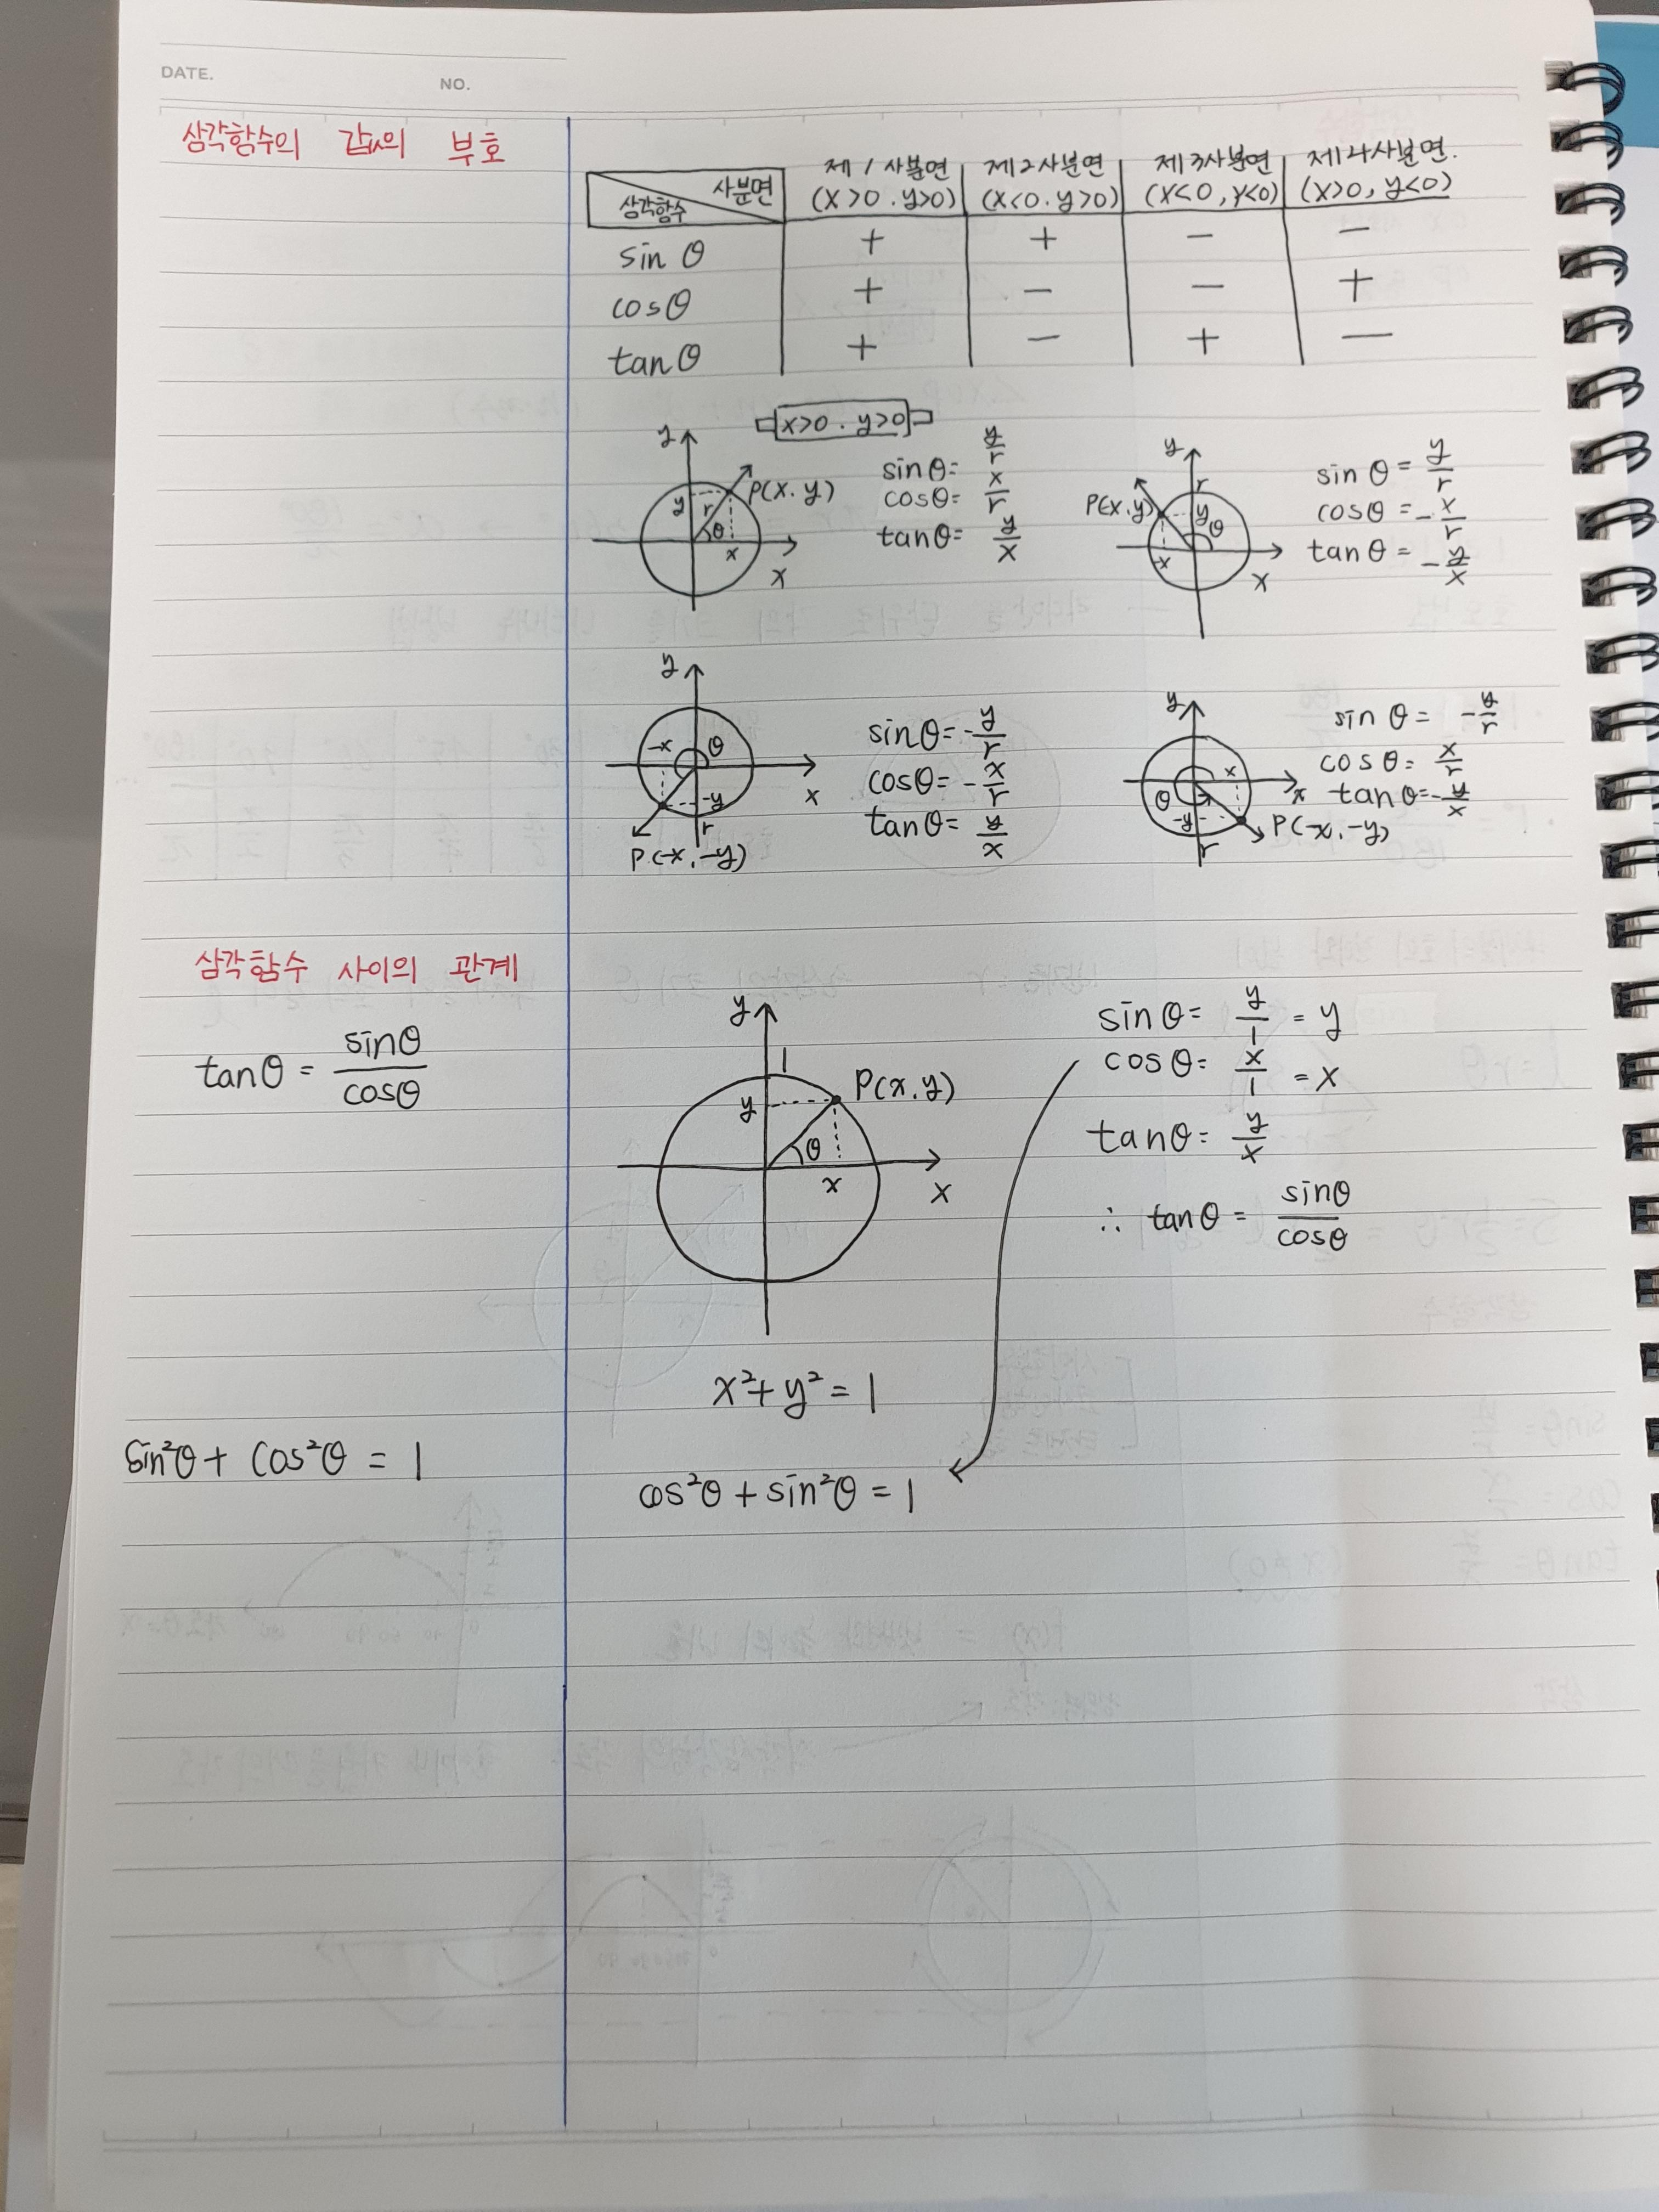 DATE.
NO.
삼각함수의 값의 부호
사분면
삼각함수
제1사분면 제2사분면 제3사분면 제4사분면.
(x>0.y>0) (x<0.y>0) (x<0,y<0) (x>0,y<0)
sin θ + + - -
cosθ + - - +
tanθ + - + -
x>0.y>0
y
y
r
θ
x
x
P(x.y)
sinθ= y/r
cosθ= x/r
tanθ= y/x
y
r
P(x.y)
y
θ
-x
x
sinθ= y/r
cosθ=-x/r
tanθ= -y/x
y
-x
θ
x
-y
r
P(-x.-y)
sinθ=-y/r
cosθ=-x/r
tanθ= y/x
y
x
θ
x
-y
r
P(-x.-y)
sin θ= -y/r
cosθ= x/r
tanθ=-y/x
삼각함수 사이의 관계
tanθ = sinθ/cosθ
y
1
y
P(x,y)
θ
x
x
sinθ= y/1 = y
cosθ= x/1 = x
tanθ= y/x
∴ tanθ = sinθ/cosθ
x²+y²=1
sin²θ+ cos²θ = 1
cos²θ+sin²θ=1